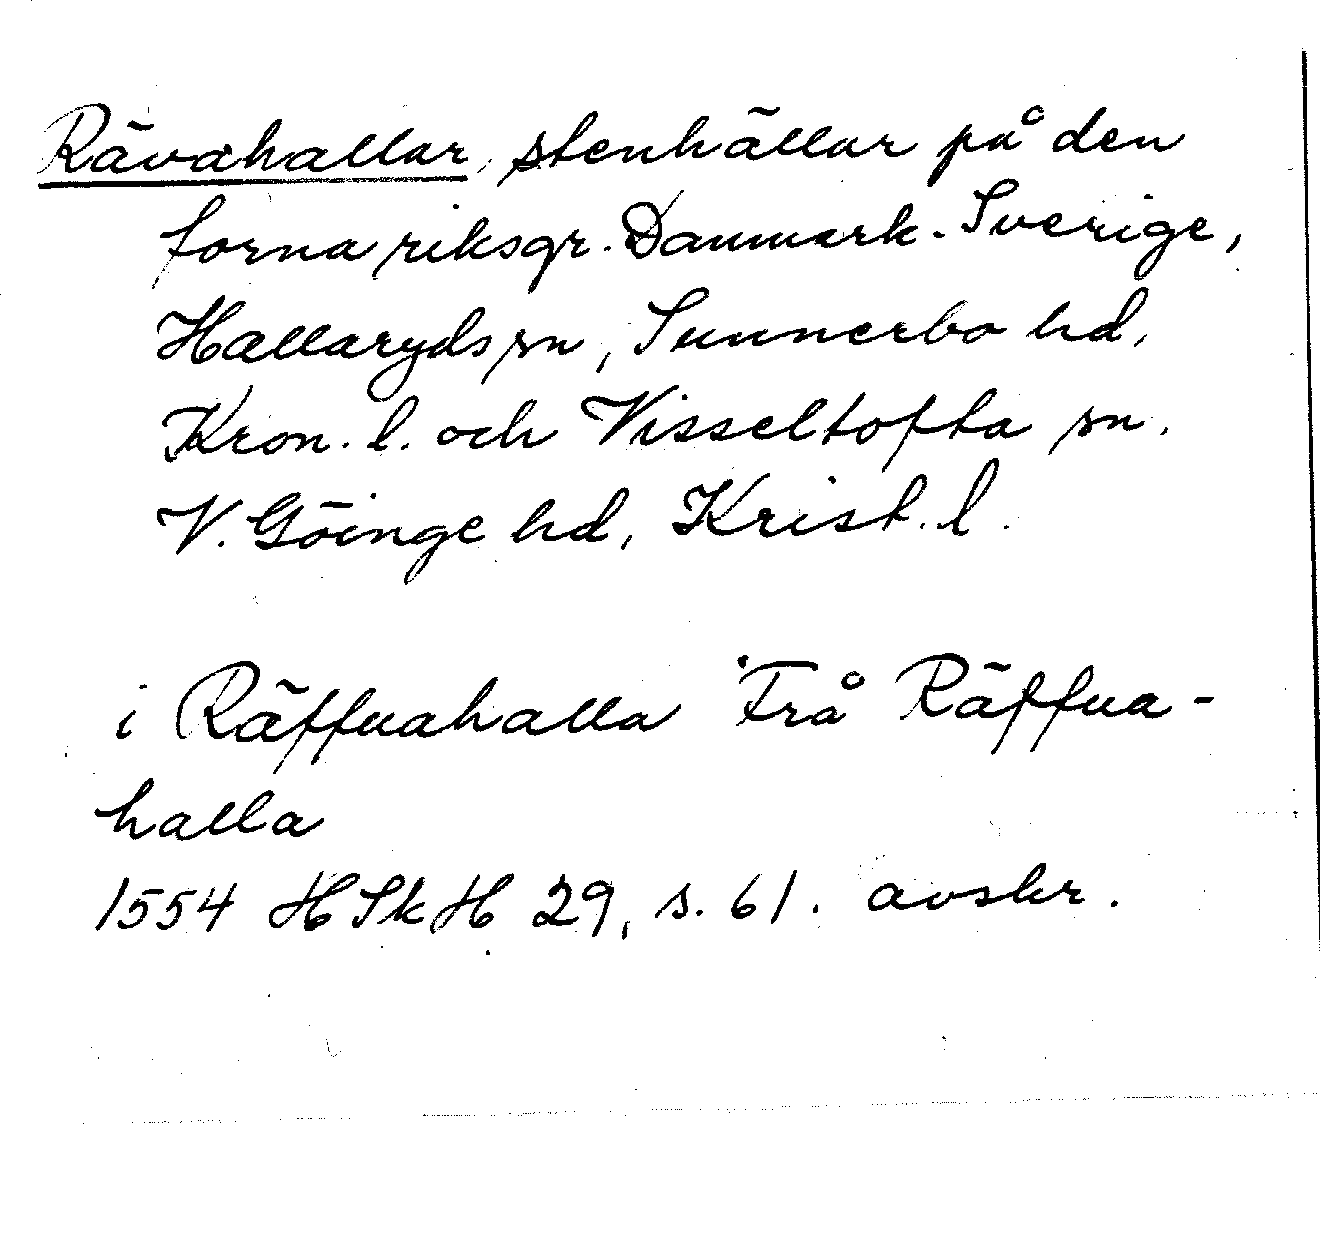 Rävahallar, stenhällar på den
forna riksgr. Danmark-Sverige,
Hallaryds sn, Sunnerbo hd,
Kron. l. och Visseltofta sn,
V. Göinge hd, Krist. l.
i Räffuahalla Frå Räffua-
halla
1554 HSkH 29, s. 61. avskr.